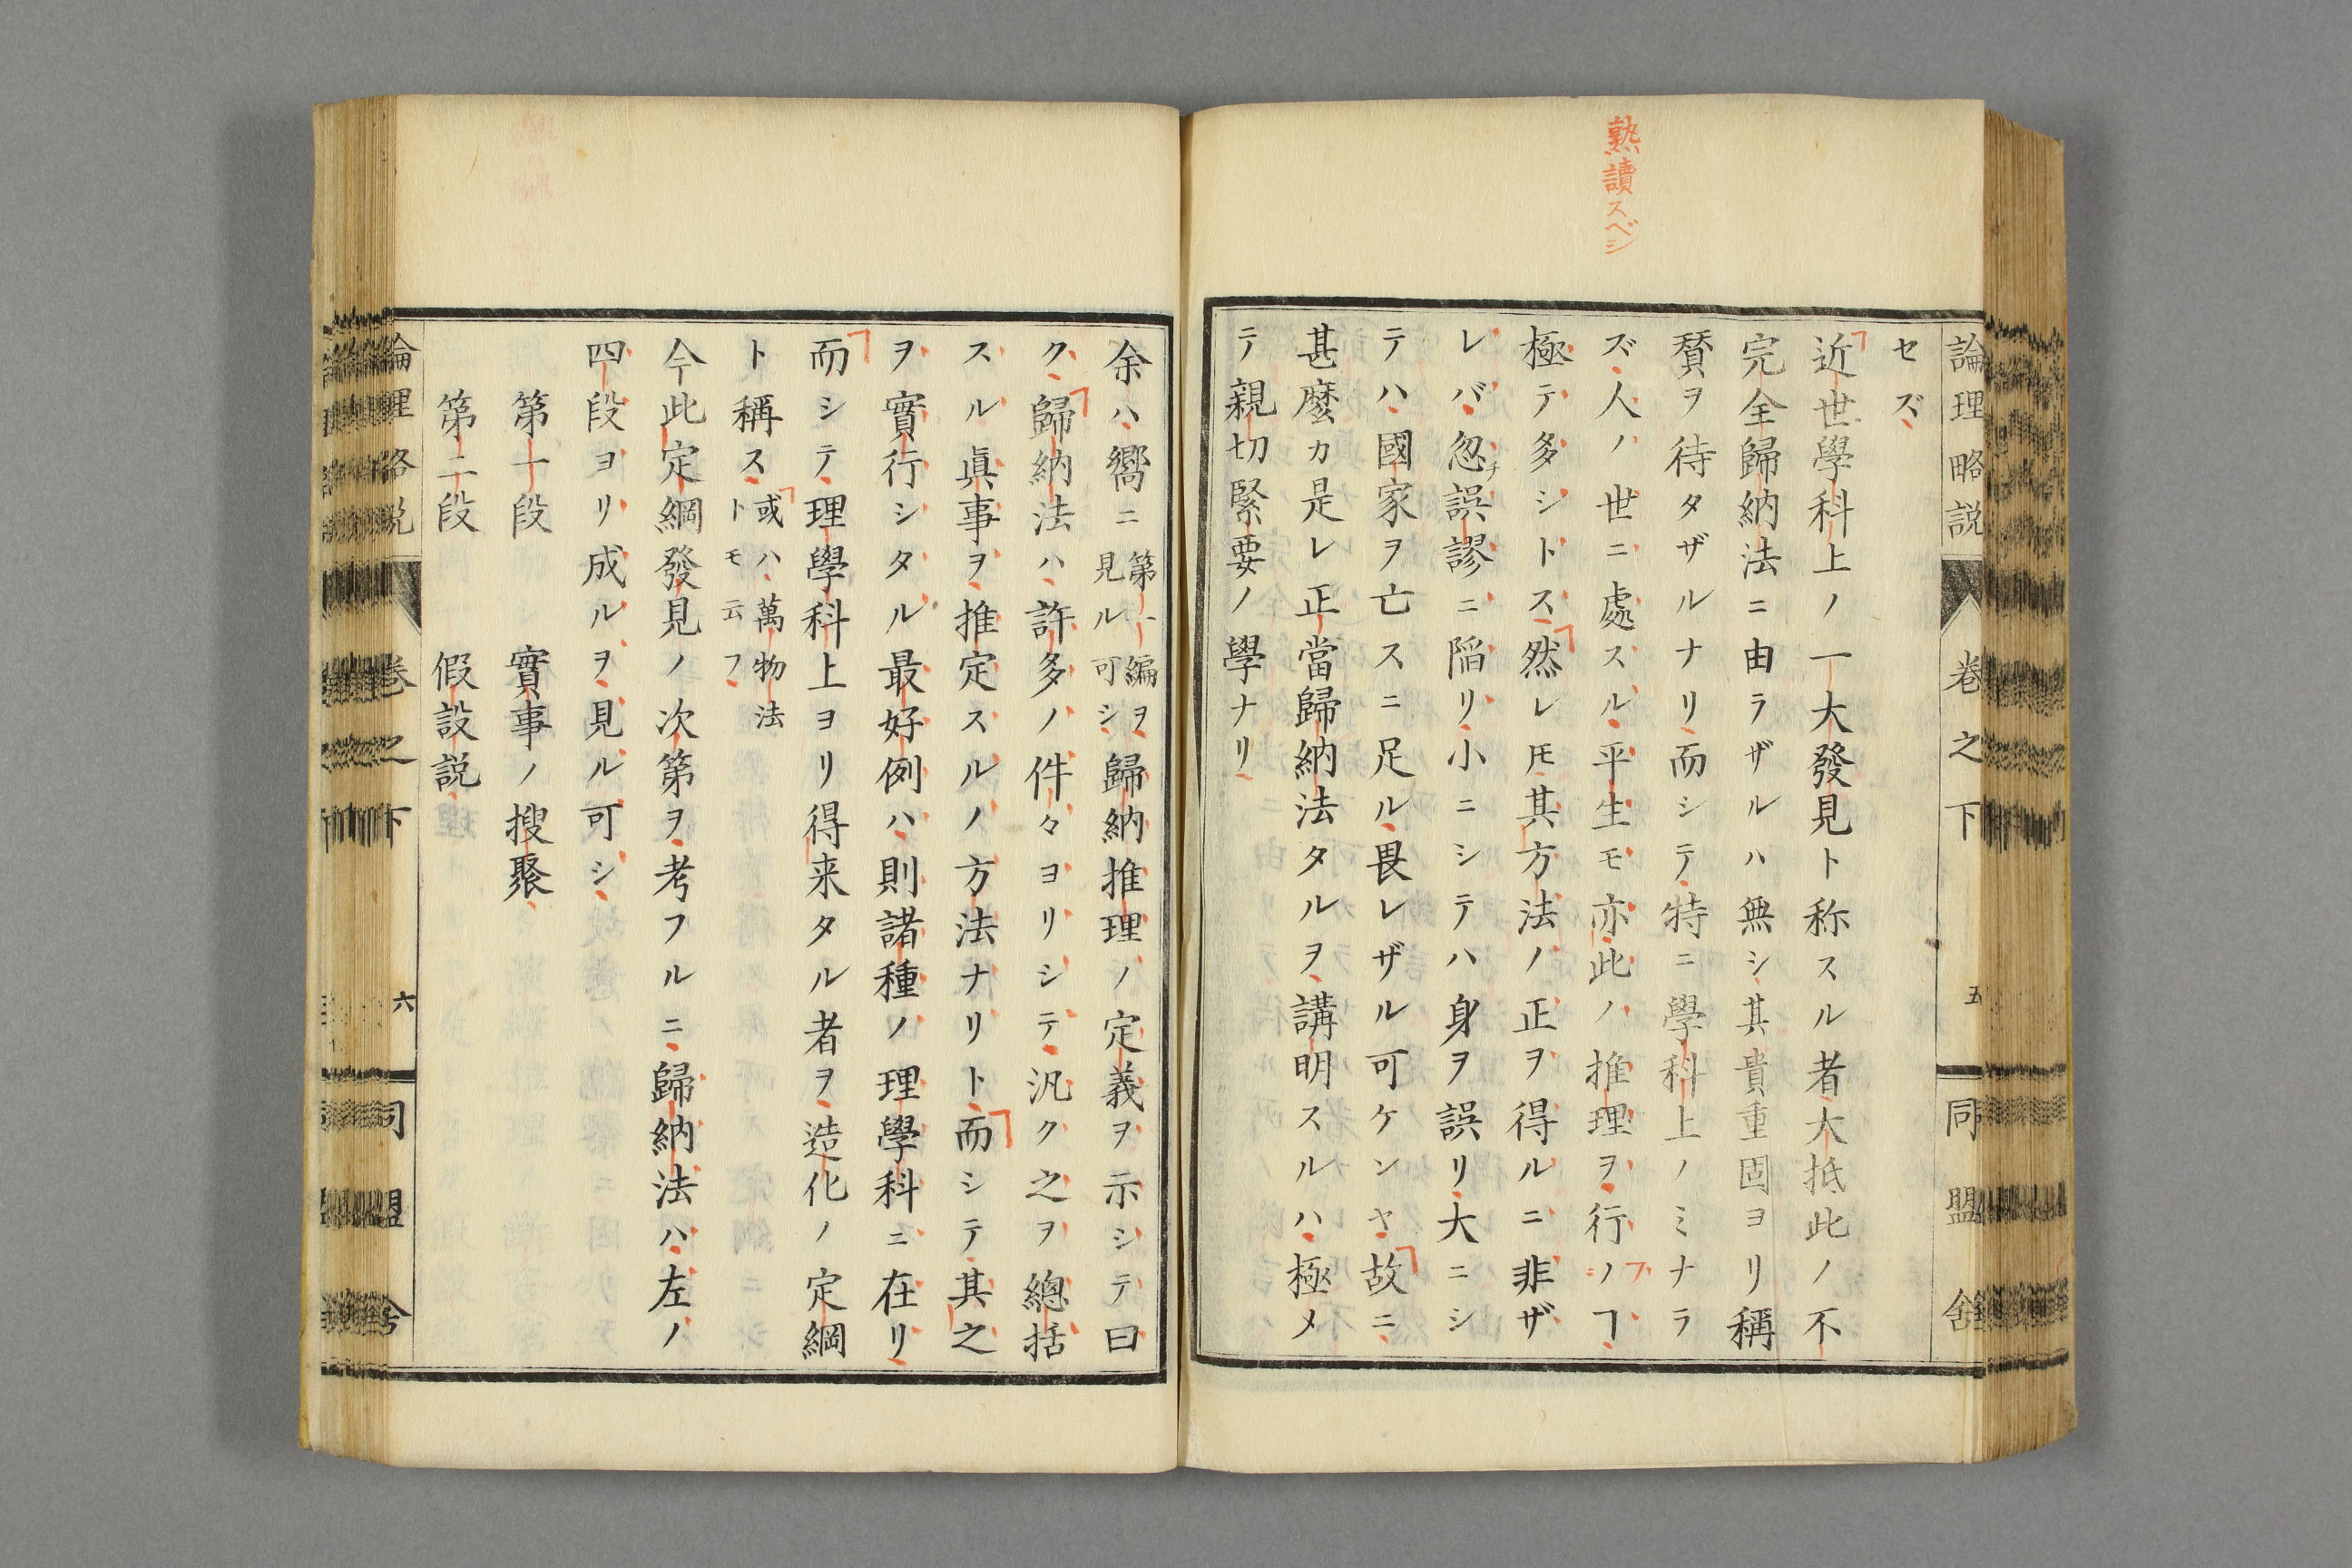 熟讀スベシ
論理略説 卷之下 五 同盟舎
セズ、
近世學科上ノ一大發見ト称スル者大抵此ノ不
完全歸納法ニ由ラザルハ無シ其貴重固ヨリ稱
賛ヲ待タザルナリ而シテ特ニ學科上ノミナラ
ズ人ノ世ニ處スル平生モ亦此ノ推理ヲ行フノヿ
極テ多シトス然レ𪜈其方法ノ正ヲ得ルニ非ザ
レバ忽チ誤謬ニ陷リ小ニシテハ身ヲ誤リ大ニシ
テハ國家ヲ亡スニ足ル畏レザル可ケンヤ故ニ
甚麼カ是レ正當歸納法タルヲ講明スルハ極メ
テ親切緊要ノ學ナリ
余ハ嚮ニ第一編ヲ見ル可シ歸納推理ノ定義ヲ示シテ曰
ク歸納法ハ許多ノ件々ヨリシテ汎ク之ヲ總括
スル眞事ヲ推定スルノ方法ナリト而シテ其之
ヲ實行シタル最好例ハ則諸種ノ理學科ニ在リ
而シテ理學科上ヨリ得来タル者ヲ造化ノ定綱
ト稱ス或ハ萬物法トモ云フ
今此定綱發見ノ次第ヲ考フルニ歸納法ハ左ノ
四段ヨリ成ルヲ見ル可シ
第一段 實事ノ搜聚
第二段 假設説
論理略説 卷之下 六 同盟舎